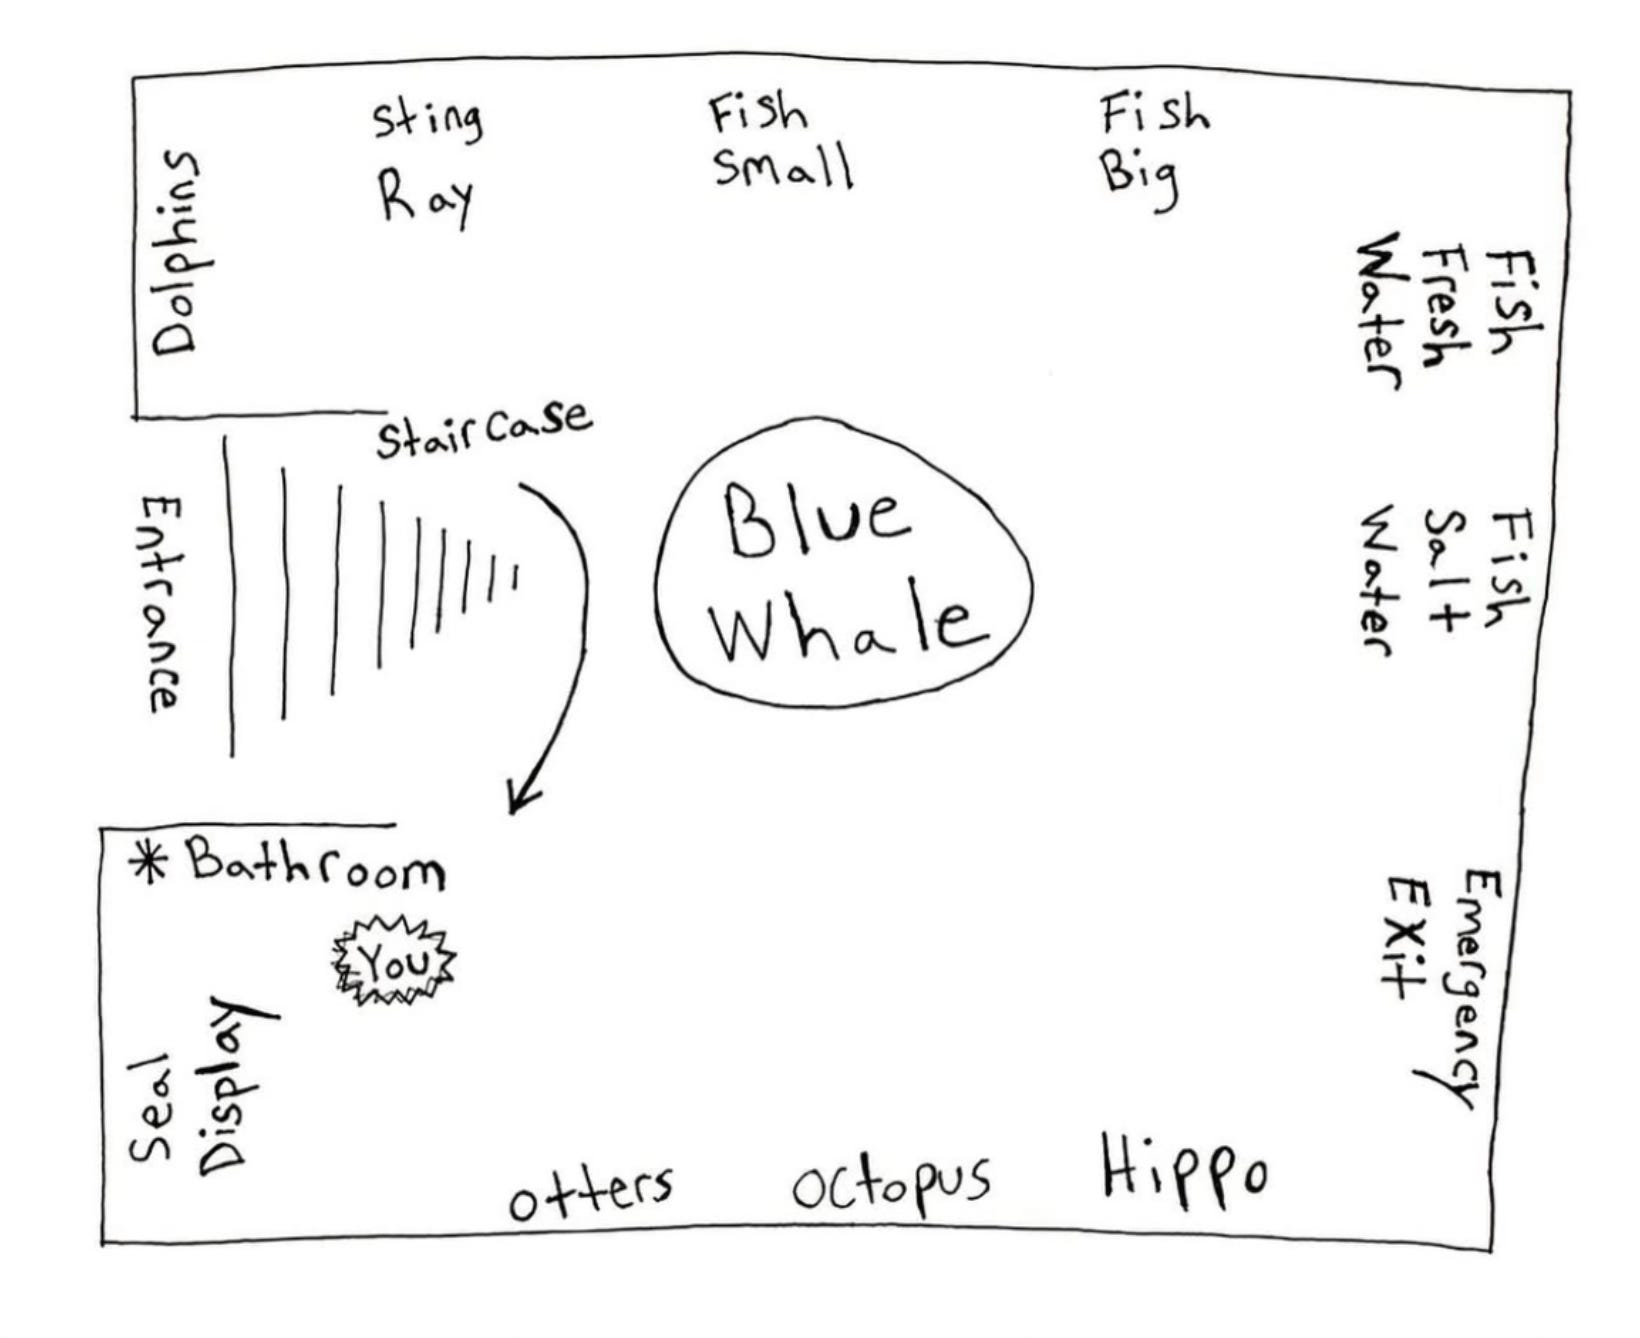 Sting
Ray
Fish
Small
Fish
Big
Dolphins
Fish
Fresh
Water
Staircase
Entrance
Blue
Whale
Fish
Salt
Water
* Bathroom
You
Emergency
Exit
Seal
Display
otters
octopus
Hippo